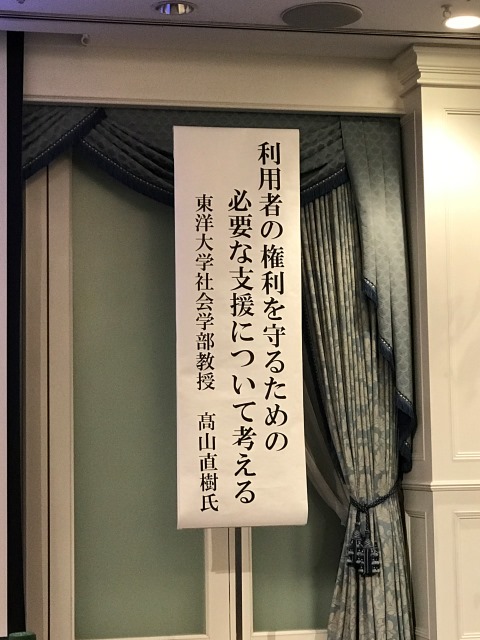 利用者の権利を守るための
必要な支援について考える
東洋大学社会学部教授　髙山直樹氏